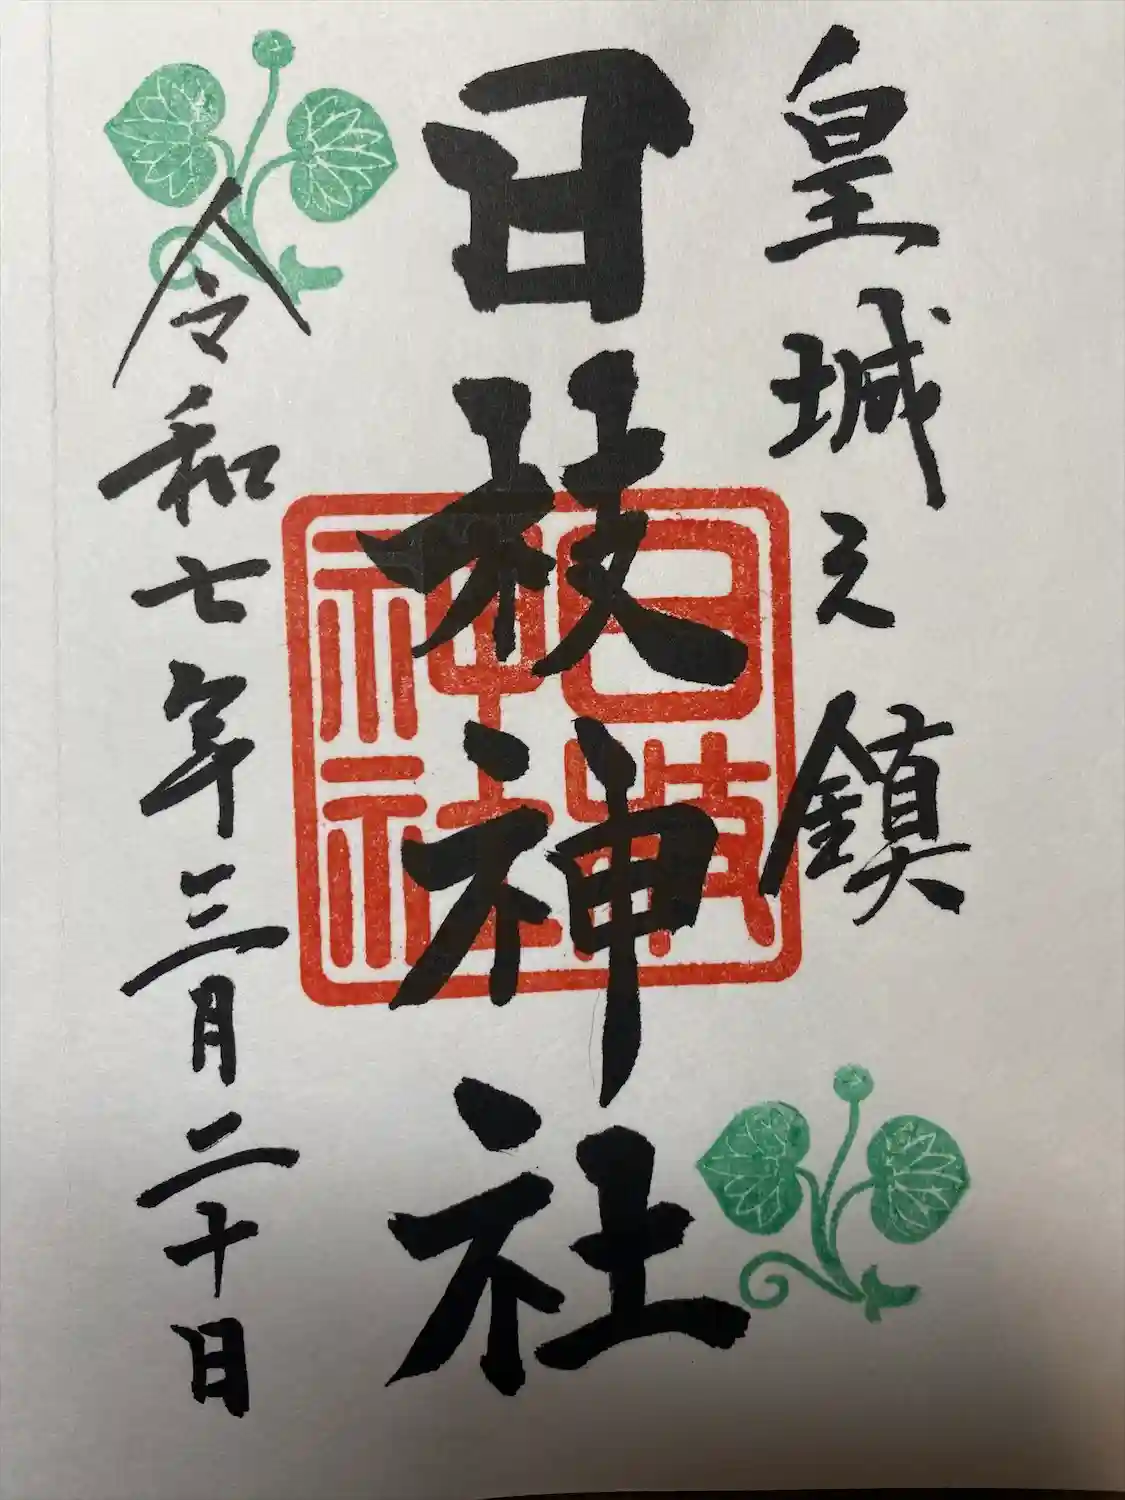 皇城之鎮
日枝神社
日枝神社
令和七年三月二十日